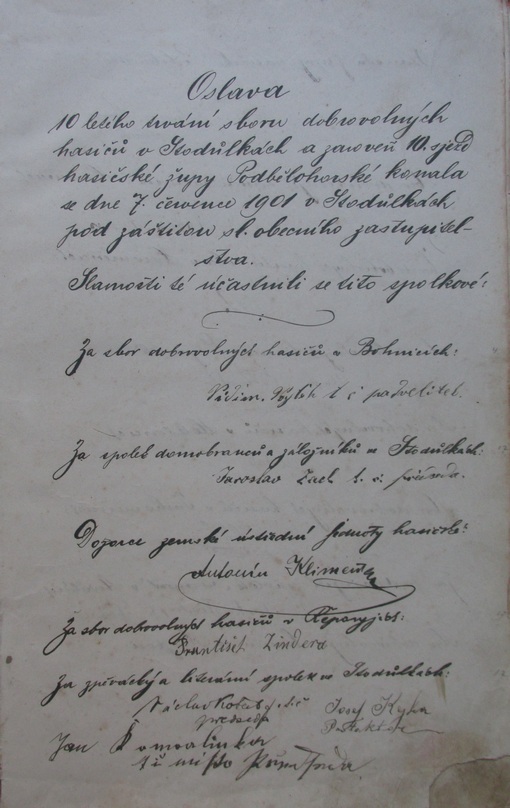 Oslava
10 letého trvání sboru dobrovolných
hasičů v Stodůlkách a zároveň 10. sjezd
hasičské župy Podbělohorské konala
se dne 7. července 1901 v Stodůlkách
pod záštitou sl. obecního zastupitel-
stva.
Slavnosti té účastnili se tito spolkové:
Za sbor dobrovolných hasičů v Bohnicích:
t. č. padvelitel.
Za spolek domobranců a záložníků ve Stodůlkách:
Jaroslav Zach t. č. předseda.
Dozorce zemské ústřední jednoty hasičské:
Antonín Kliment
Za sbor dobrovolných hasičů v Řeporyjích:
František Zindera
Za zpěvácký a literární spolek ve Stodůlkách:
Václav
předseda
Josef Kyka
Jan
t. č. místo